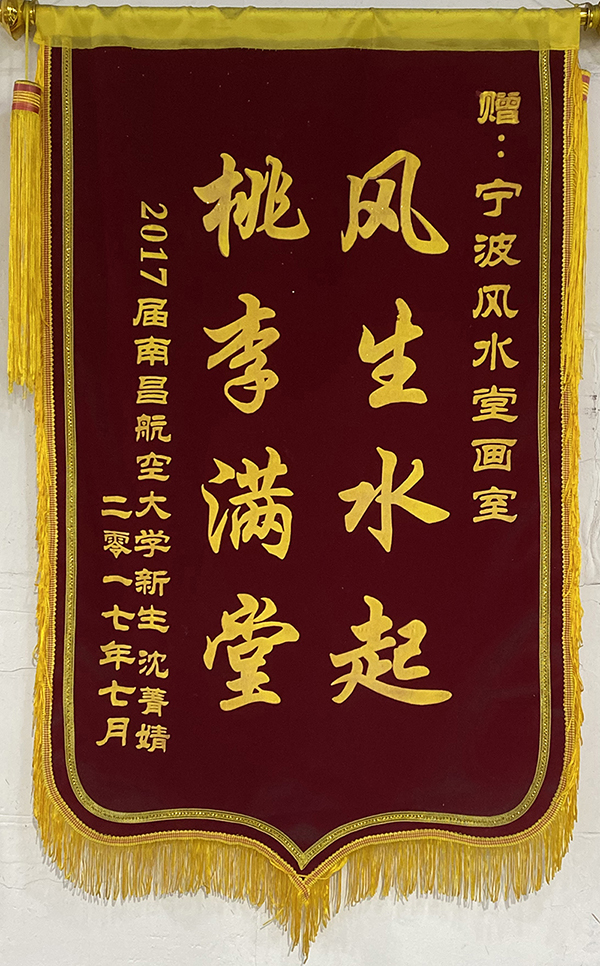 赠:宁波风水堂画室
风生水起
桃李满堂
2017届南昌航空大学新生沈菁婧
二零一七年七月